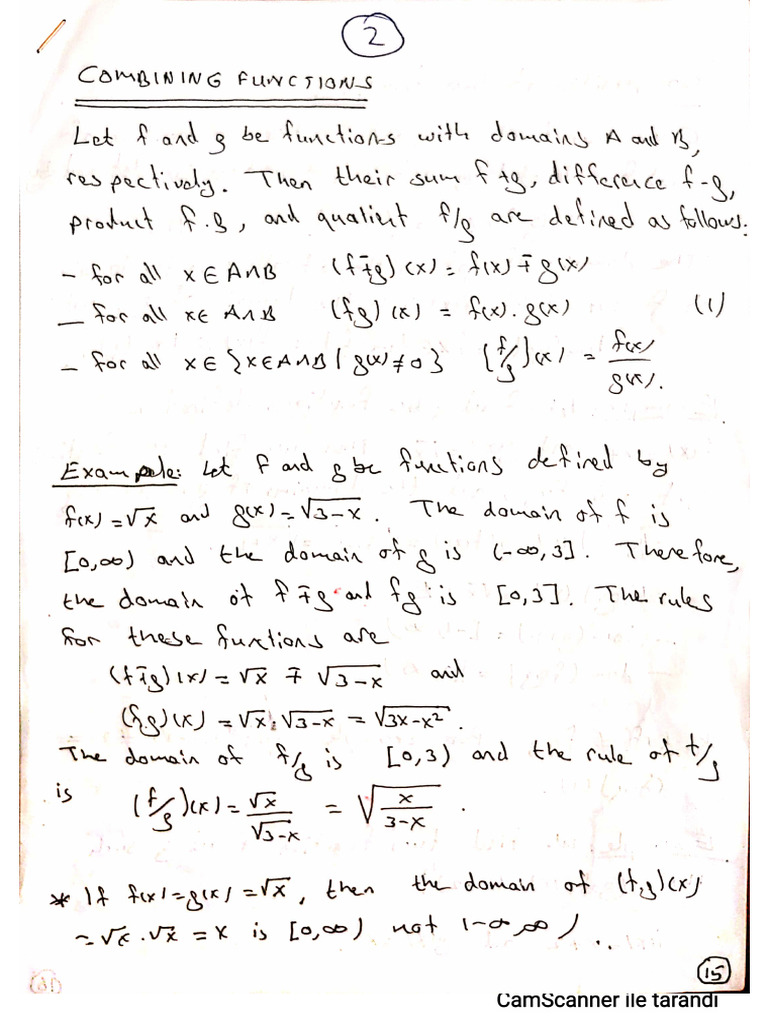 2
COMBINING FUNCTIONS
Let f and g be functions with domains A and B,
respectively. Then their sum f+g, difference f-g,
product f.g, and qualient f/g are defined as follows:
- for all x ∈ A∩B (f∓g)(x) = f(x) ∓ g(x)
- for all x ∈ A∩B (fg)(x) = f(x).g(x) (1)
- for all x ∈ {x∈A∩B | g(x)≠0} (f/g)(x) = f(x)/g(x).
Example: Let f and g be functions defined by
f(x) = √x and g(x) = √(3-x). The domain of f is
[0,∞) and the domain of g is (-∞,3]. Therefore,
the domain of f∓g and fg is [0,3]. The rules
for these functions are
(f∓g)(x) = √x ∓ √(3-x) and
(f.g)(x) = √x.√(3-x) = √(3x-x²).
The domain of f/g is [0,3) and the rule of f/g
is (f/g)(x) = √x/√(3-x) = √(x/(3-x)).
* If f(x)=g(x)=√x, then the domain of (f.g)(x)
=√x.√x = x is [0,∞) not (-∞,∞)..
15
CamScanner ile tarandı